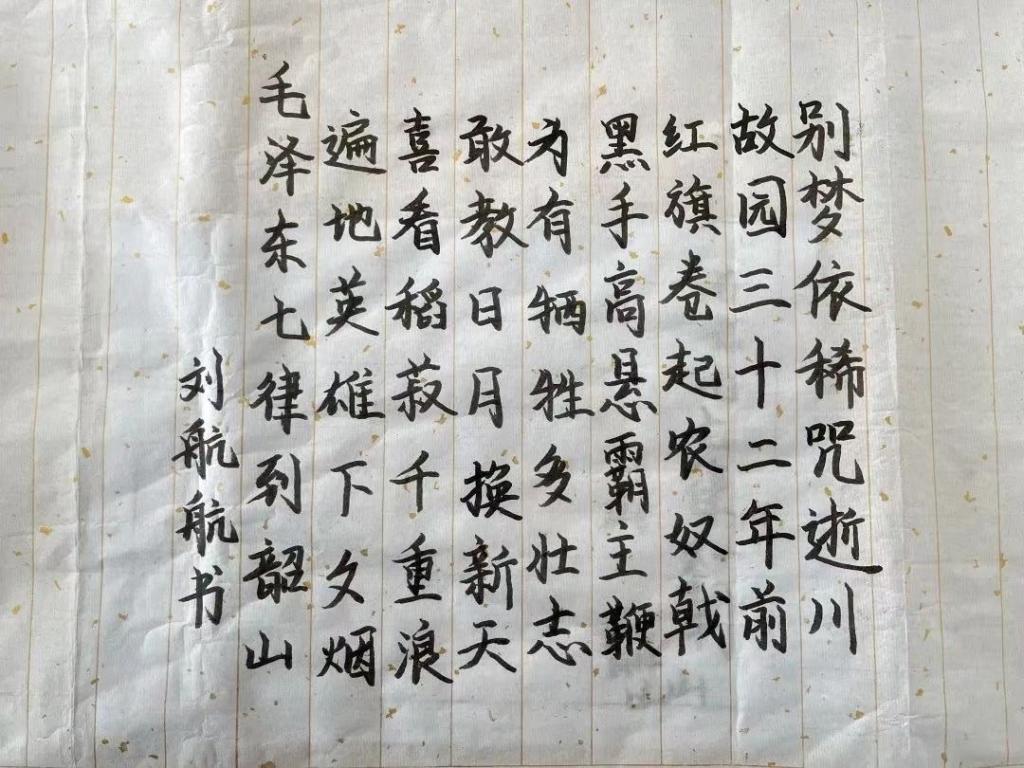 别梦依稀咒逝川
故园三十二年前
红旗卷起农奴戟
黑手高悬霸主鞭
为有牺牲多壮志
敢教日月换新天
喜看稻菽千重浪
遍地英雄下夕烟
毛泽东七律到韶山
刘航航书